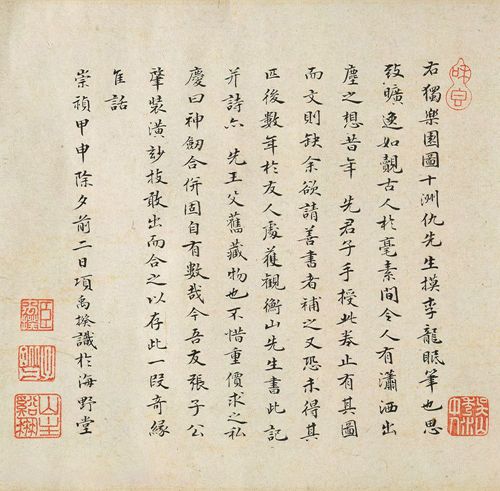 右獨樂園圖十洲仇先生摸李龍眠筆也思
致曠逸如覩古人於毫素間令人有瀟洒出
塵之想昔年 先君子手授此卷止有其圖
而文則缺余欲請善書者補之又恐未得其
匹後數年於友人處獲觀衡山先生書此記
并詩亦 先王父舊藏物也不惜重價求之私
慶曰神劒合併固自有數哉今吾友張子公
肇裝潢玅技敢出而合之以存此一段奇緣
佳話
崇禎甲申除夕前二日項禹揆識於海野堂